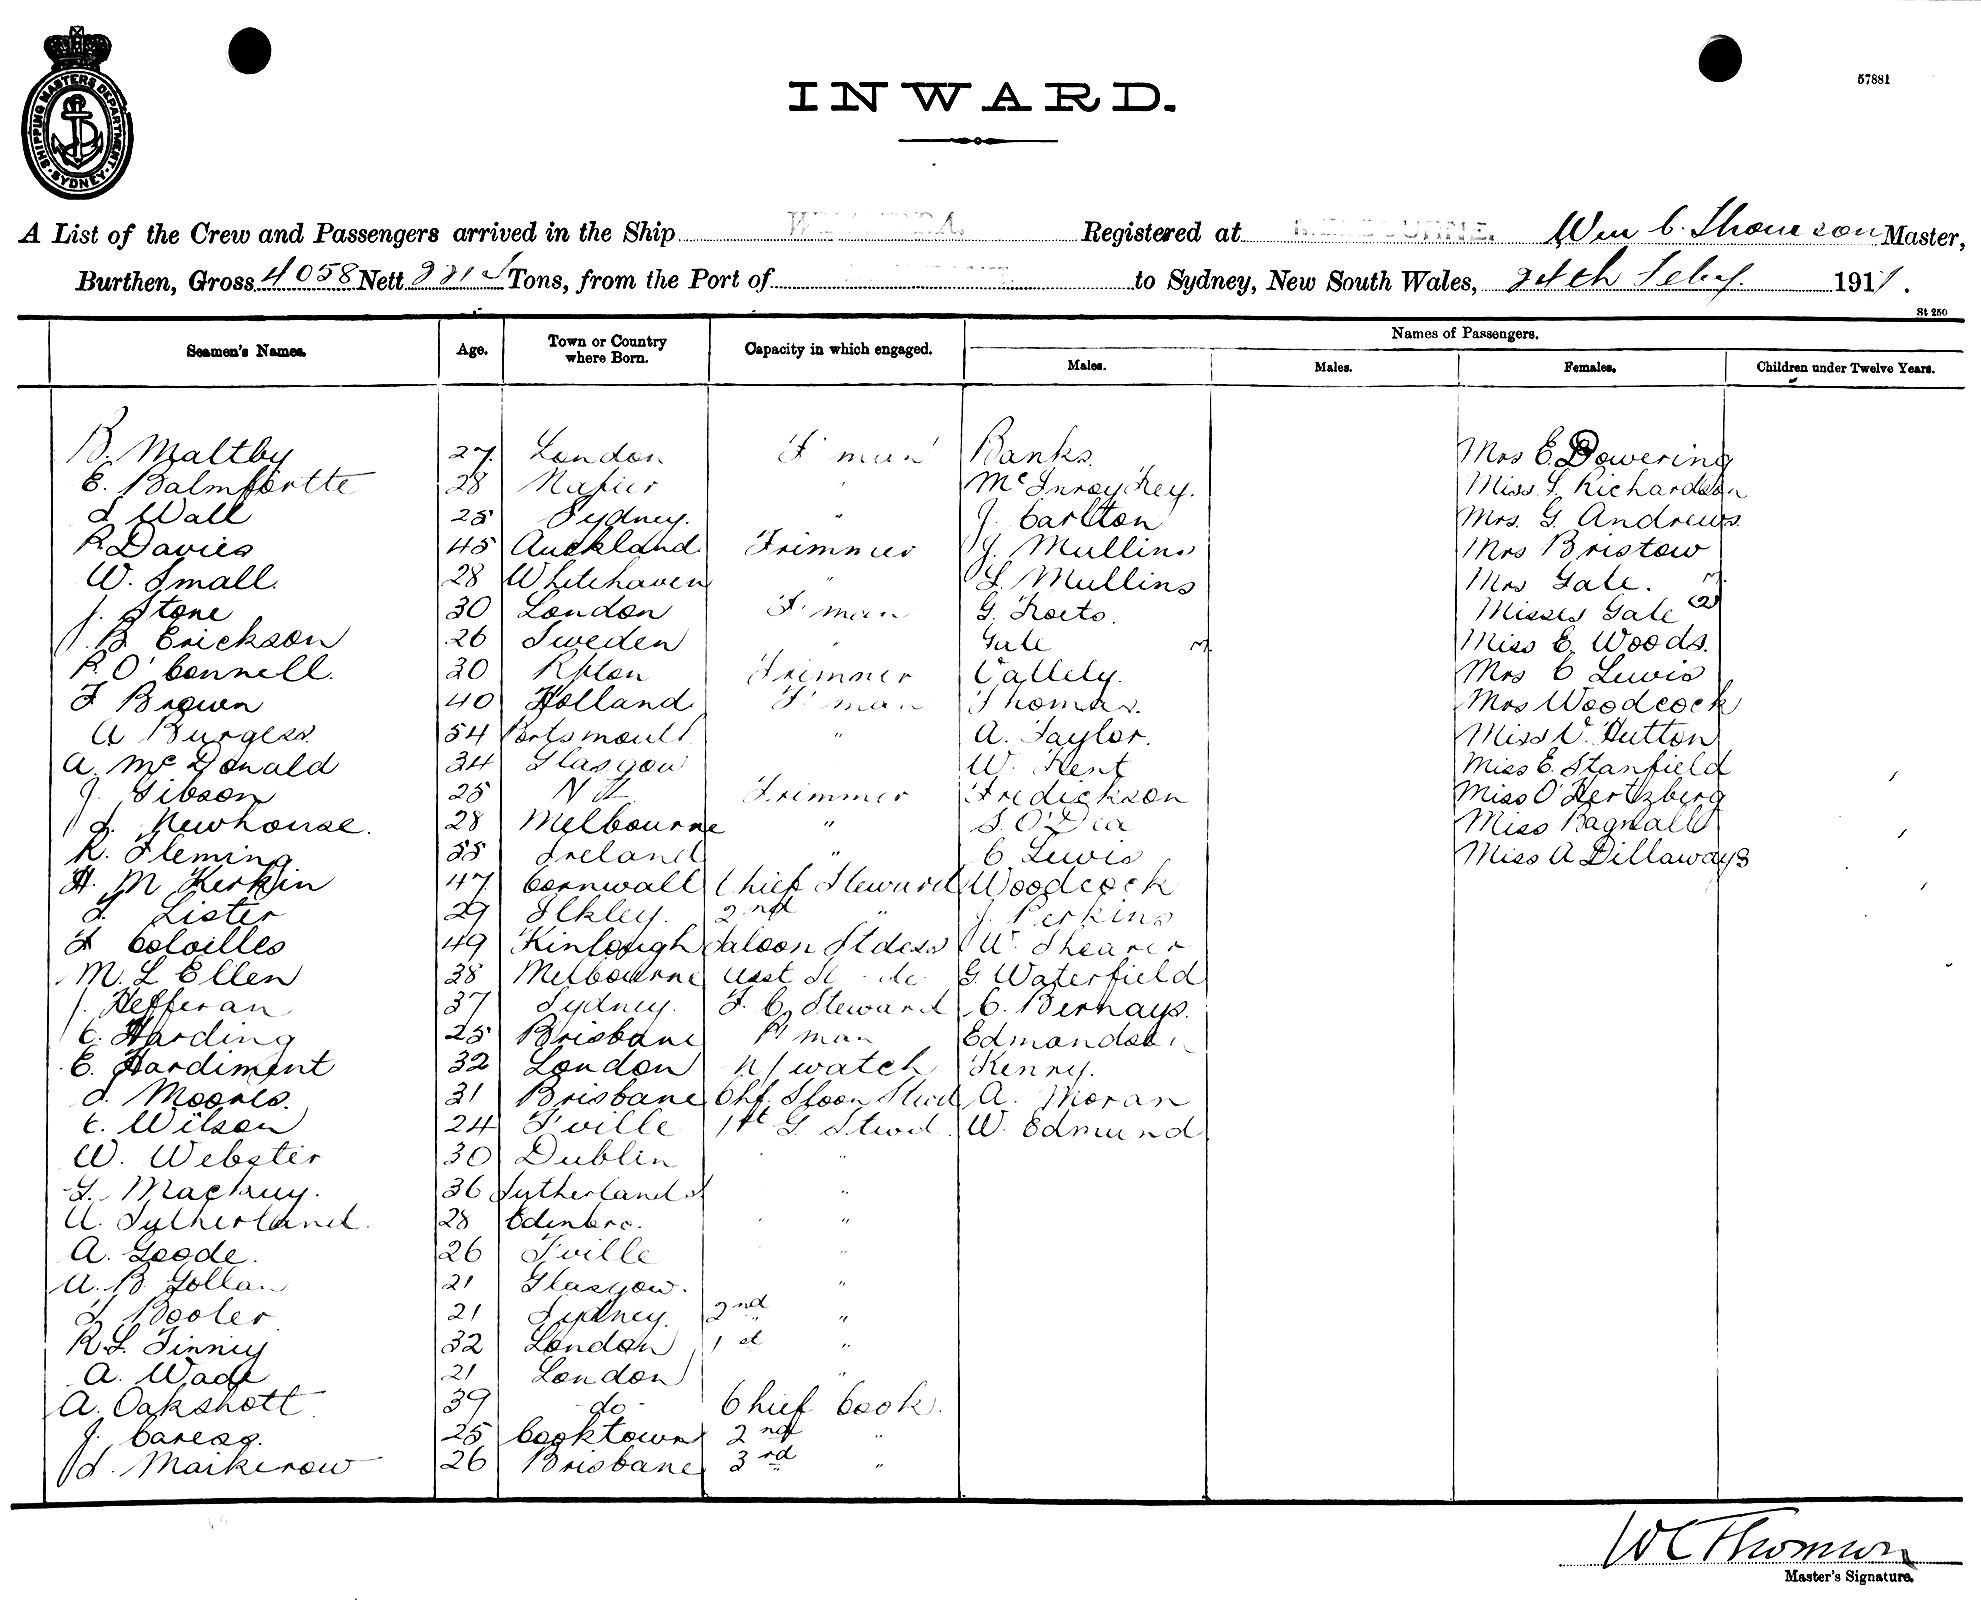 SHIPPING MASTERS DEPARTMENT
SYDNEY
57881
INWARD.
A List of the Crew and Passengers arrived in the Ship Registered at Wm C. Thomson Master,
Burthen, Gross 4058 Nett Tons, from the Port of to Sydney, New South Wales, 24th Feby. 1911.
St 250
Seamen's Names. Age. Town or Country where Born. Capacity in which engaged. Names of Passengers.
Males. Males. Females. Children under Twelve Years.
B. Maltby 27 London F'man Banks. Mrs E. Dowering
E. Balmfortte 28 Napier " Miss Richardson
Wall 25 Sydney. " J. Carlton Mrs. G. Andrews.
R Davies 45 Auckland Trimmer J. Mullins Mrs Bristow
W. Small. 28 Whitehaven " L. Mullins Mrs Gale.
J. Stone 30 London F'man G. Misses Gale (2)
B. Erickson 26 Sweden " Gale Miss E. Woods.
P. O'Connell. 30 Trimmer Callely. Mrs C Lewis
F Brown 40 Holland F'man Thomas. Mrs Woodcock
A Burgess. 54 Portsmouth " A. Taylor. Miss V. Hutton
A. McDonald 34 Glasgow W. Kent Miss E. Stanfield
J. Gibson 25 N Z. Trimmer Fredickson Miss O'Hertzberg
J. Newhouse. 28 Melbourne " S. O'Dea Miss Bagnall
R. Fleming Ireland " C. Lewis Miss A Dillaways
H. M Kerkin 47 Cornwall Chief Steward Woodcock
Lister 29 Ilkley. 2nd " J. Perkins
Colvilles 49 Kinlough Saloon Stdess W. Shearer
M. L Ellen 38 Melbourne G. Waterfield
J. Hefferan 37 Sydney. F. C. Steward C. Bernays.
C. Harding 25 Brisbane P'man Edmandson
E. Hardiment 32 London N/watch Kenny.
J. Moores. 31 Brisbane Chf. Sloon Stwd A. Moran
C. Wilson 24 T'ville 1st G. Stwd. W. Edmund
W. Webster 30 Dublin "
Mackay. 36 "
A. Sutherland. 28 Edinbro. "
A. Goode. 26 T'ville "
A. B Gollan 21 Glasgow. "
Booler 21 Sydney. 2nd "
R. L. Finney 32 London 1st "
A. Wade 21 London "
A. Oakshott 39 do Chief Cook.
J. 25 Cooktown 2nd "
J. 26 Brisbane 3rd "
W C Thomson
Master's Signature.